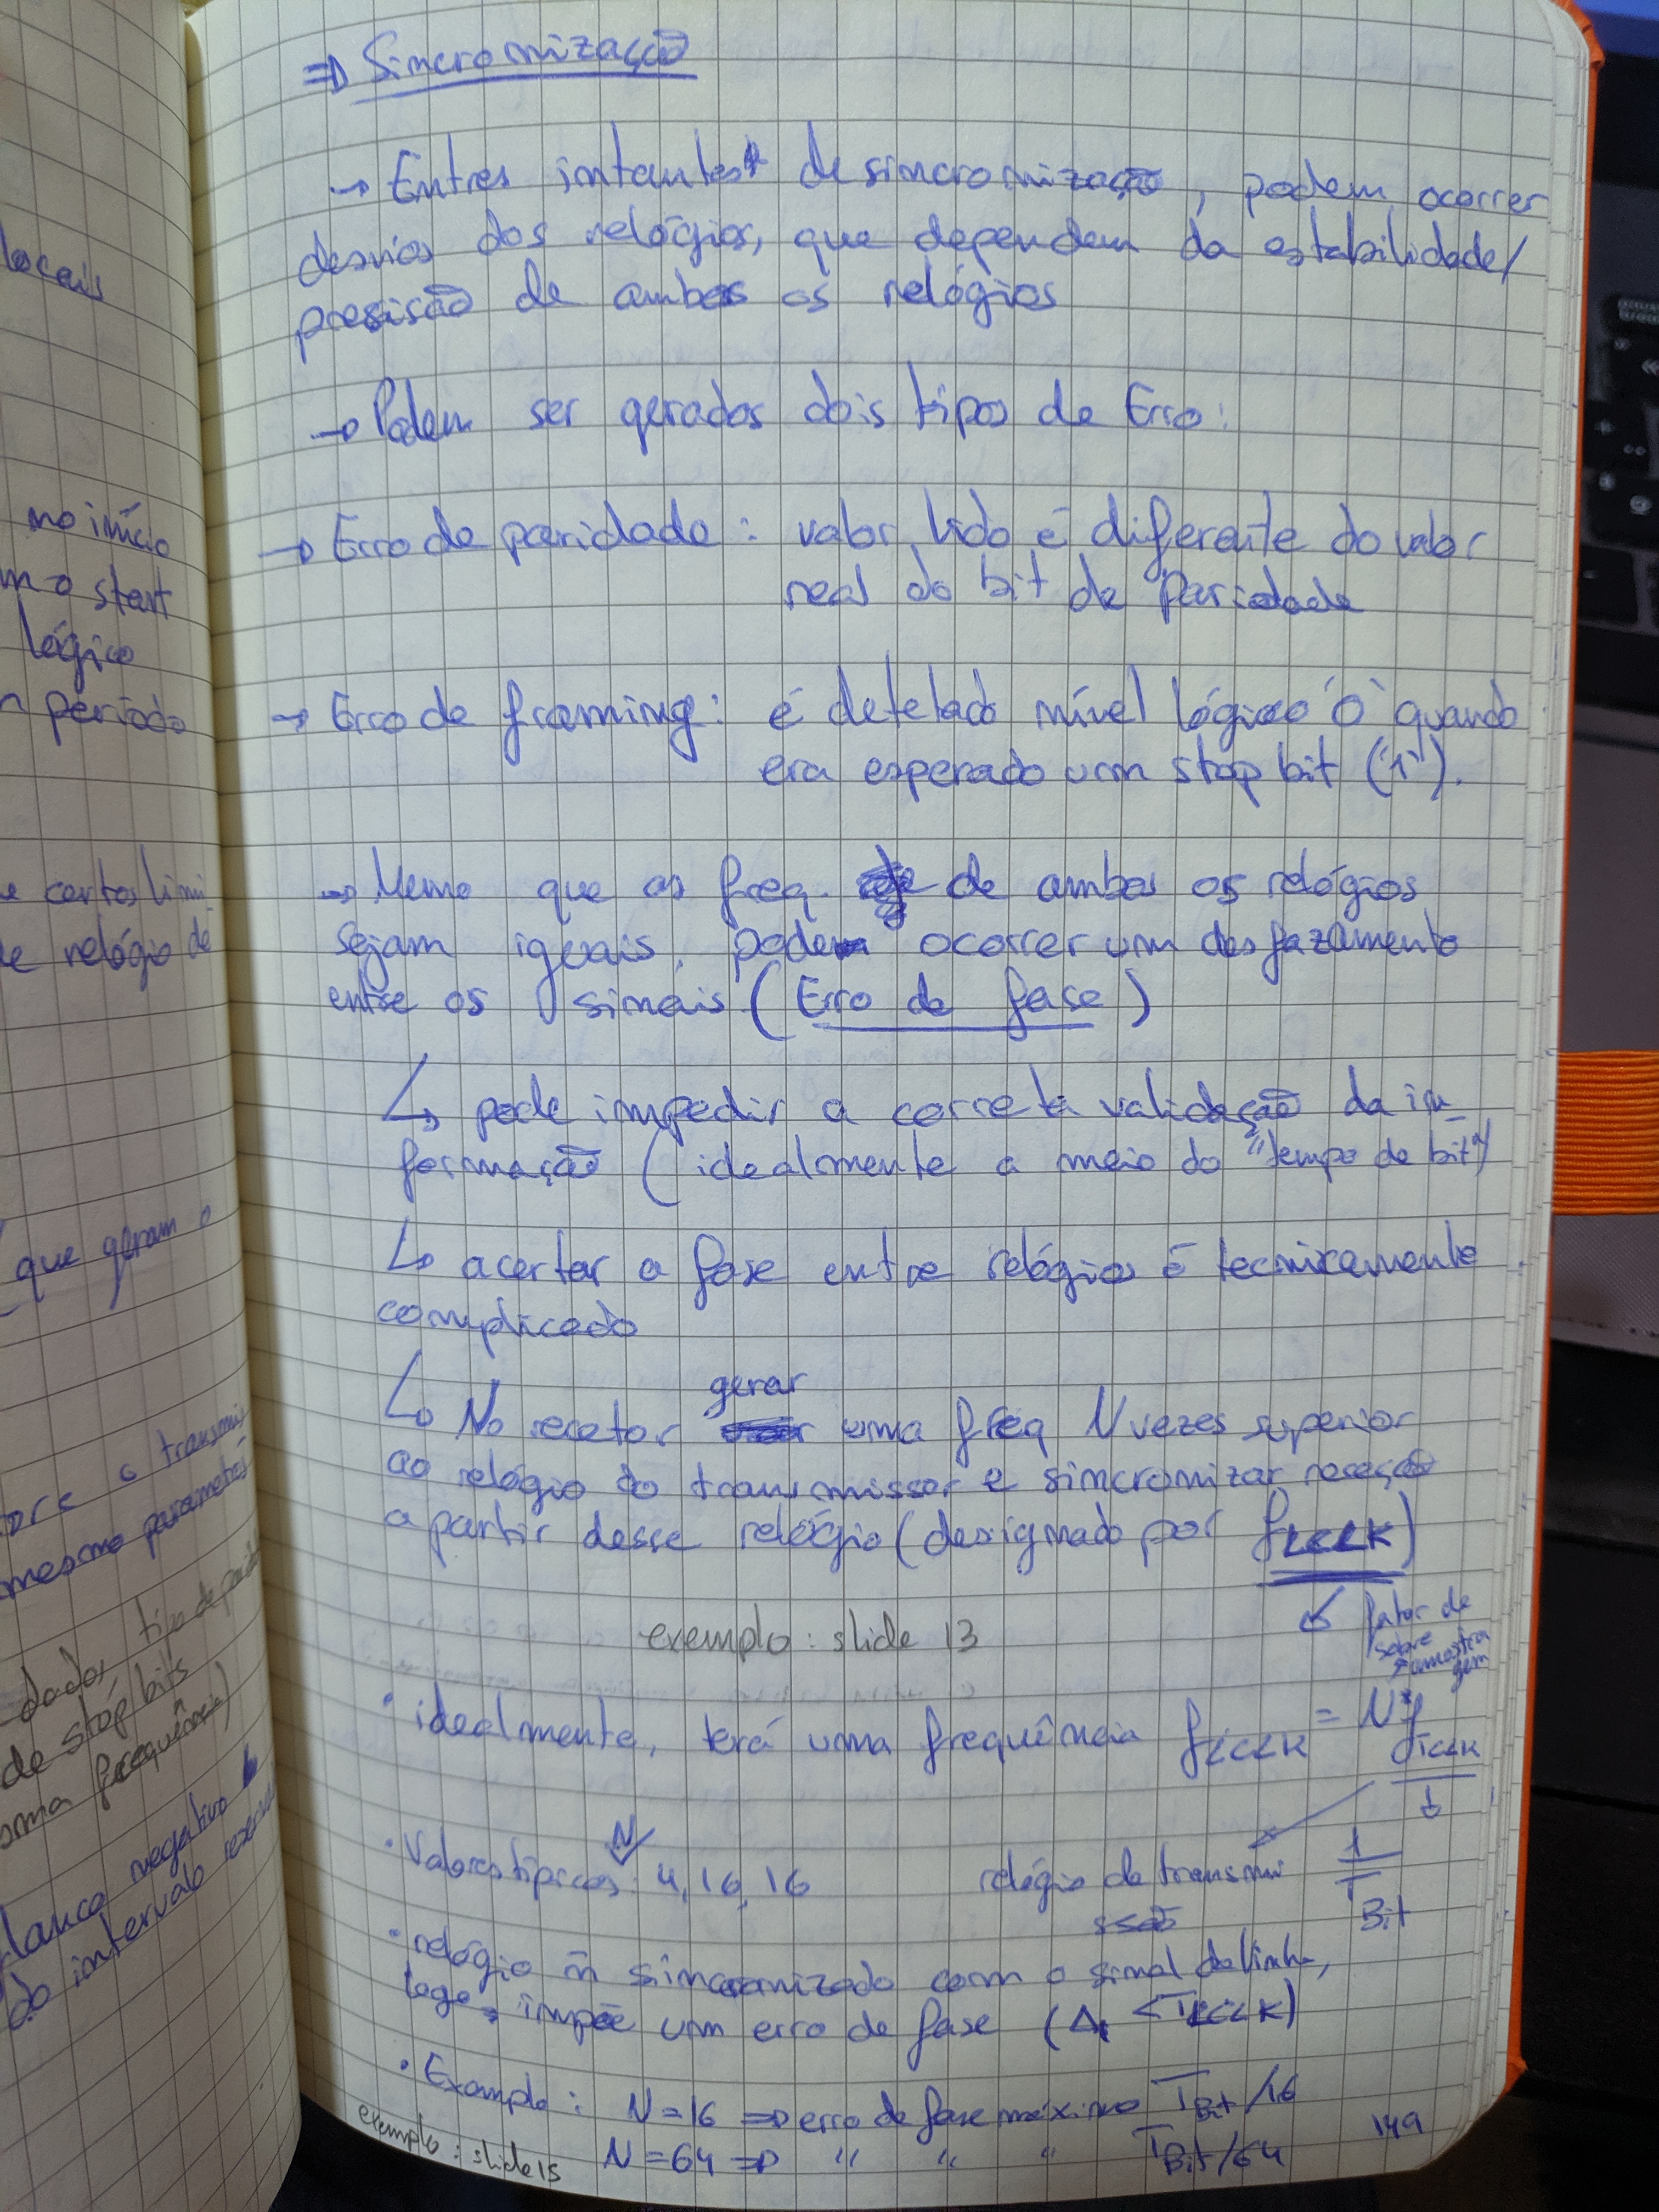 locais
no início
m o start
lógico
período
e certos limi-
e relógio de
que geram o
ore o transmis
mesmo parametros
dados, tipo de parida
de stop bits
sma frequência)
flanco negativo
do intervalo
=> Sincronização
→ Entres intantes de sincronização, podem ocorrer
desvios dos relógios, que dependem da estabilidade/
presisão de ambos os relógios
→ Podem ser gerados dois tipos de Erro:
→ Erro de paridade: valor lido é diferente do valor
real do bit de Paridade
→ Erro de framing: é detetado nível lógico '0' quando
era esperado um stop bit ('1').
→ Memo que as freq. de ambos os relógios
sejam iguais, pode ocorrer um desfazamento
entre os sinais (Erro de fase)
↳ pode impedir a correta validação da in_
formação (idealmente a meio do "tempo de bit")
↳ acertar a fase entre relógios é tecnicamente
complicado
gerar
↳ No recetor uma freq N vezes superior
ao relógio do transmissor e sincronizar receção
a partir desse relógio (designado por fLCLK)
exemplo: slide 13
↙ fator de
sobre
amostra
gem
• idealmente, terá uma frequência fLCLK = N*fTCLK
N
• Valores típicos: 4, 16, 16
relógio de transmi
ssão
1
T Bit
• relógio ñ sincronizado com o sinal da linha,
logo, impõe um erro de fase (Δ1 < TLCLK)
• Example: N=16 => erro de fase máximo TBit/16
N=64 => " " " TBit/64
exemplo: slide 15
149